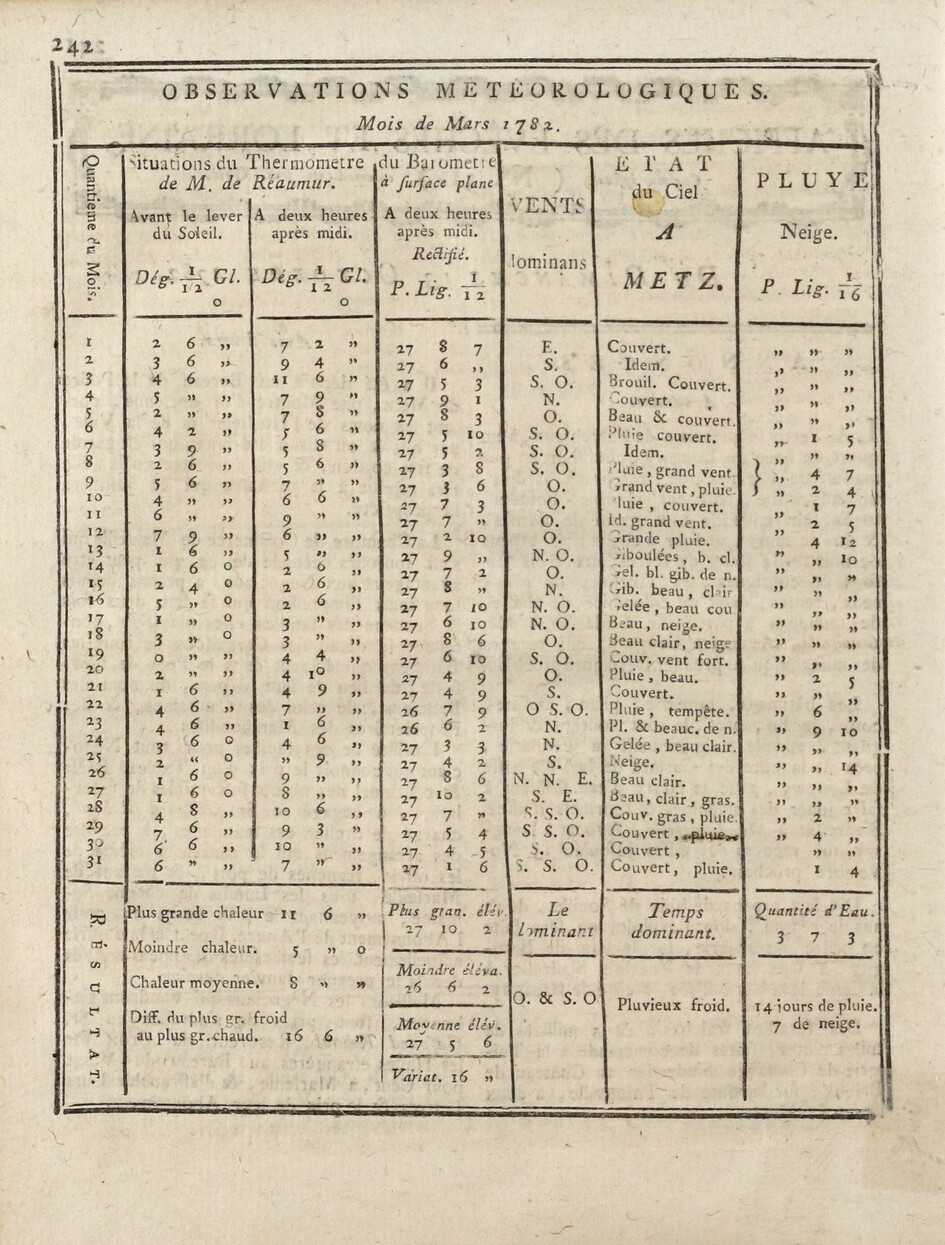 242
OBSERVATIONS METÉOROLOGIQUES.
Mois de Mars 1782.
Quantieme du Mois.
Situations du Thermometre de M. de Réaumur.
Avant le lever du Soleil.
Dég. 1/12 Gl. 0
A deux heures après midi.
Dég. 1/12 Gl. 0
du Barometre à surface plane
A deux heures après midi. Rectifié.
P. Lig. 1/12
VENTS
lominans
ETAT du Ciel A METZ.
PLUYE Neige.
P. Lig. 1/16
1 2 6 „ 7 2 „ 27 8 7 E. Couvert. „ „ „
2 3 6 „ 9 4 „ 27 6 „ S. Idem. „ „ „
3 4 6 „ 11 6 „ 27 5 3 S. O. Brouil. Couvert. „ „ „
4 5 „ „ 7 9 „ 27 9 1 N. Couvert. „ „ „
5 2 „ „ 7 8 „ 27 8 3 O. Beau & couvert. „ „ „
6 4 2 „ 5 6 „ 27 5 10 S. O. Pluie couvert. „ 1 5
7 3 9 „ 5 8 „ 27 5 2 S. O. Idem. „ „ „
8 2 6 „ 5 6 „ 27 3 8 S. O. Pluie, grand vent. „ 4 7
9 5 6 „ 7 „ „ 27 3 6 O. Grand vent, pluie. „ 2 4
10 4 „ „ 6 6 „ 27 7 3 O. Pluie, couvert. „ 1 7
11 6 „ „ 9 „ „ 27 7 „ O. Id. grand vent. „ 2 5
12 7 9 „ 6 „ „ 27 2 10 O. Grande pluie. „ 4 12
13 1 6 „ 5 „ „ 27 9 „ N. O. Giboulées, b. cl. „ „ 10
14 1 6 0 2 0 „ 27 7 2 O. Gel. bl. gib. de n. „ „ „
15 2 4 0 2 6 „ 27 8 „ N. Gib. beau, clair „ „ „
16 5 „ 0 2 6 „ 27 7 10 N. O. Gelée, beau cou „ „ „
17 1 „ 0 3 „ „ 27 6 10 N. O. Beau, neige. „ „ „
18 3 „ 0 3 „ „ 27 8 6 O. Beau clair, neige „ „ „
19 0 „ „ 4 4 „ 27 6 10 S. O. Couv. vent fort. „ „ „
20 2 „ „ 4 10 „ 27 4 9 O. Pluie, beau. „ 2 5
21 1 6 „ 4 9 „ 27 4 9 S. Couvert. „ „ „
22 4 6 „ 7 „ „ 26 7 9 O S. O. Pluie, tempête. „ 6 „
23 4 6 „ 1 6 „ 26 6 2 N. Pl. & beauc. de n. „ 9 10
24 3 6 0 4 6 „ 27 3 3 N. Gelée, beau clair. „ „ „
25 2 “ 0 „ 9 „ 27 4 2 S. Neige. „ „ 14
26 1 6 0 9 „ „ 27 8 6 N. N. E. Beau clair. „ „ „
27 1 6 0 8 „ „ 27 10 2 S. E. Beau, clair, gras. „ „ „
28 4 8 „ 10 6 „ 27 7 „ S. S. O. Couv. gras, pluie. „ 2 „
29 7 6 „ 9 3 „ 27 5 4 S. S. O. Couvert, pluie. „ 4 „
30 6 6 „ 10 „ „ 27 4 5 S. O. Couvert, „ „
31 6 „ „ 7 „ „ 27 1 6 S. S. O. Couvert, pluie. 1 4
RESULTAT.
Plus grande chaleur 11 6 „
Moindre chaleur. 5 „ 0
Chaleur moyenne. 8 „ „
Diff. du plus gr. froid
au plus gr. chaud. 16 6 „
Plus gran. élév.
27 10 2
Moindre éléva.
26 6 2
Moyenne élév.
27 5 6
Variat. 16 „
Le
lominant
O. & S. O
Temps
dominant.
Pluvieux froid.
Quantité d'Eau.
3 7 3
14 jours de pluie.
7 de neige.